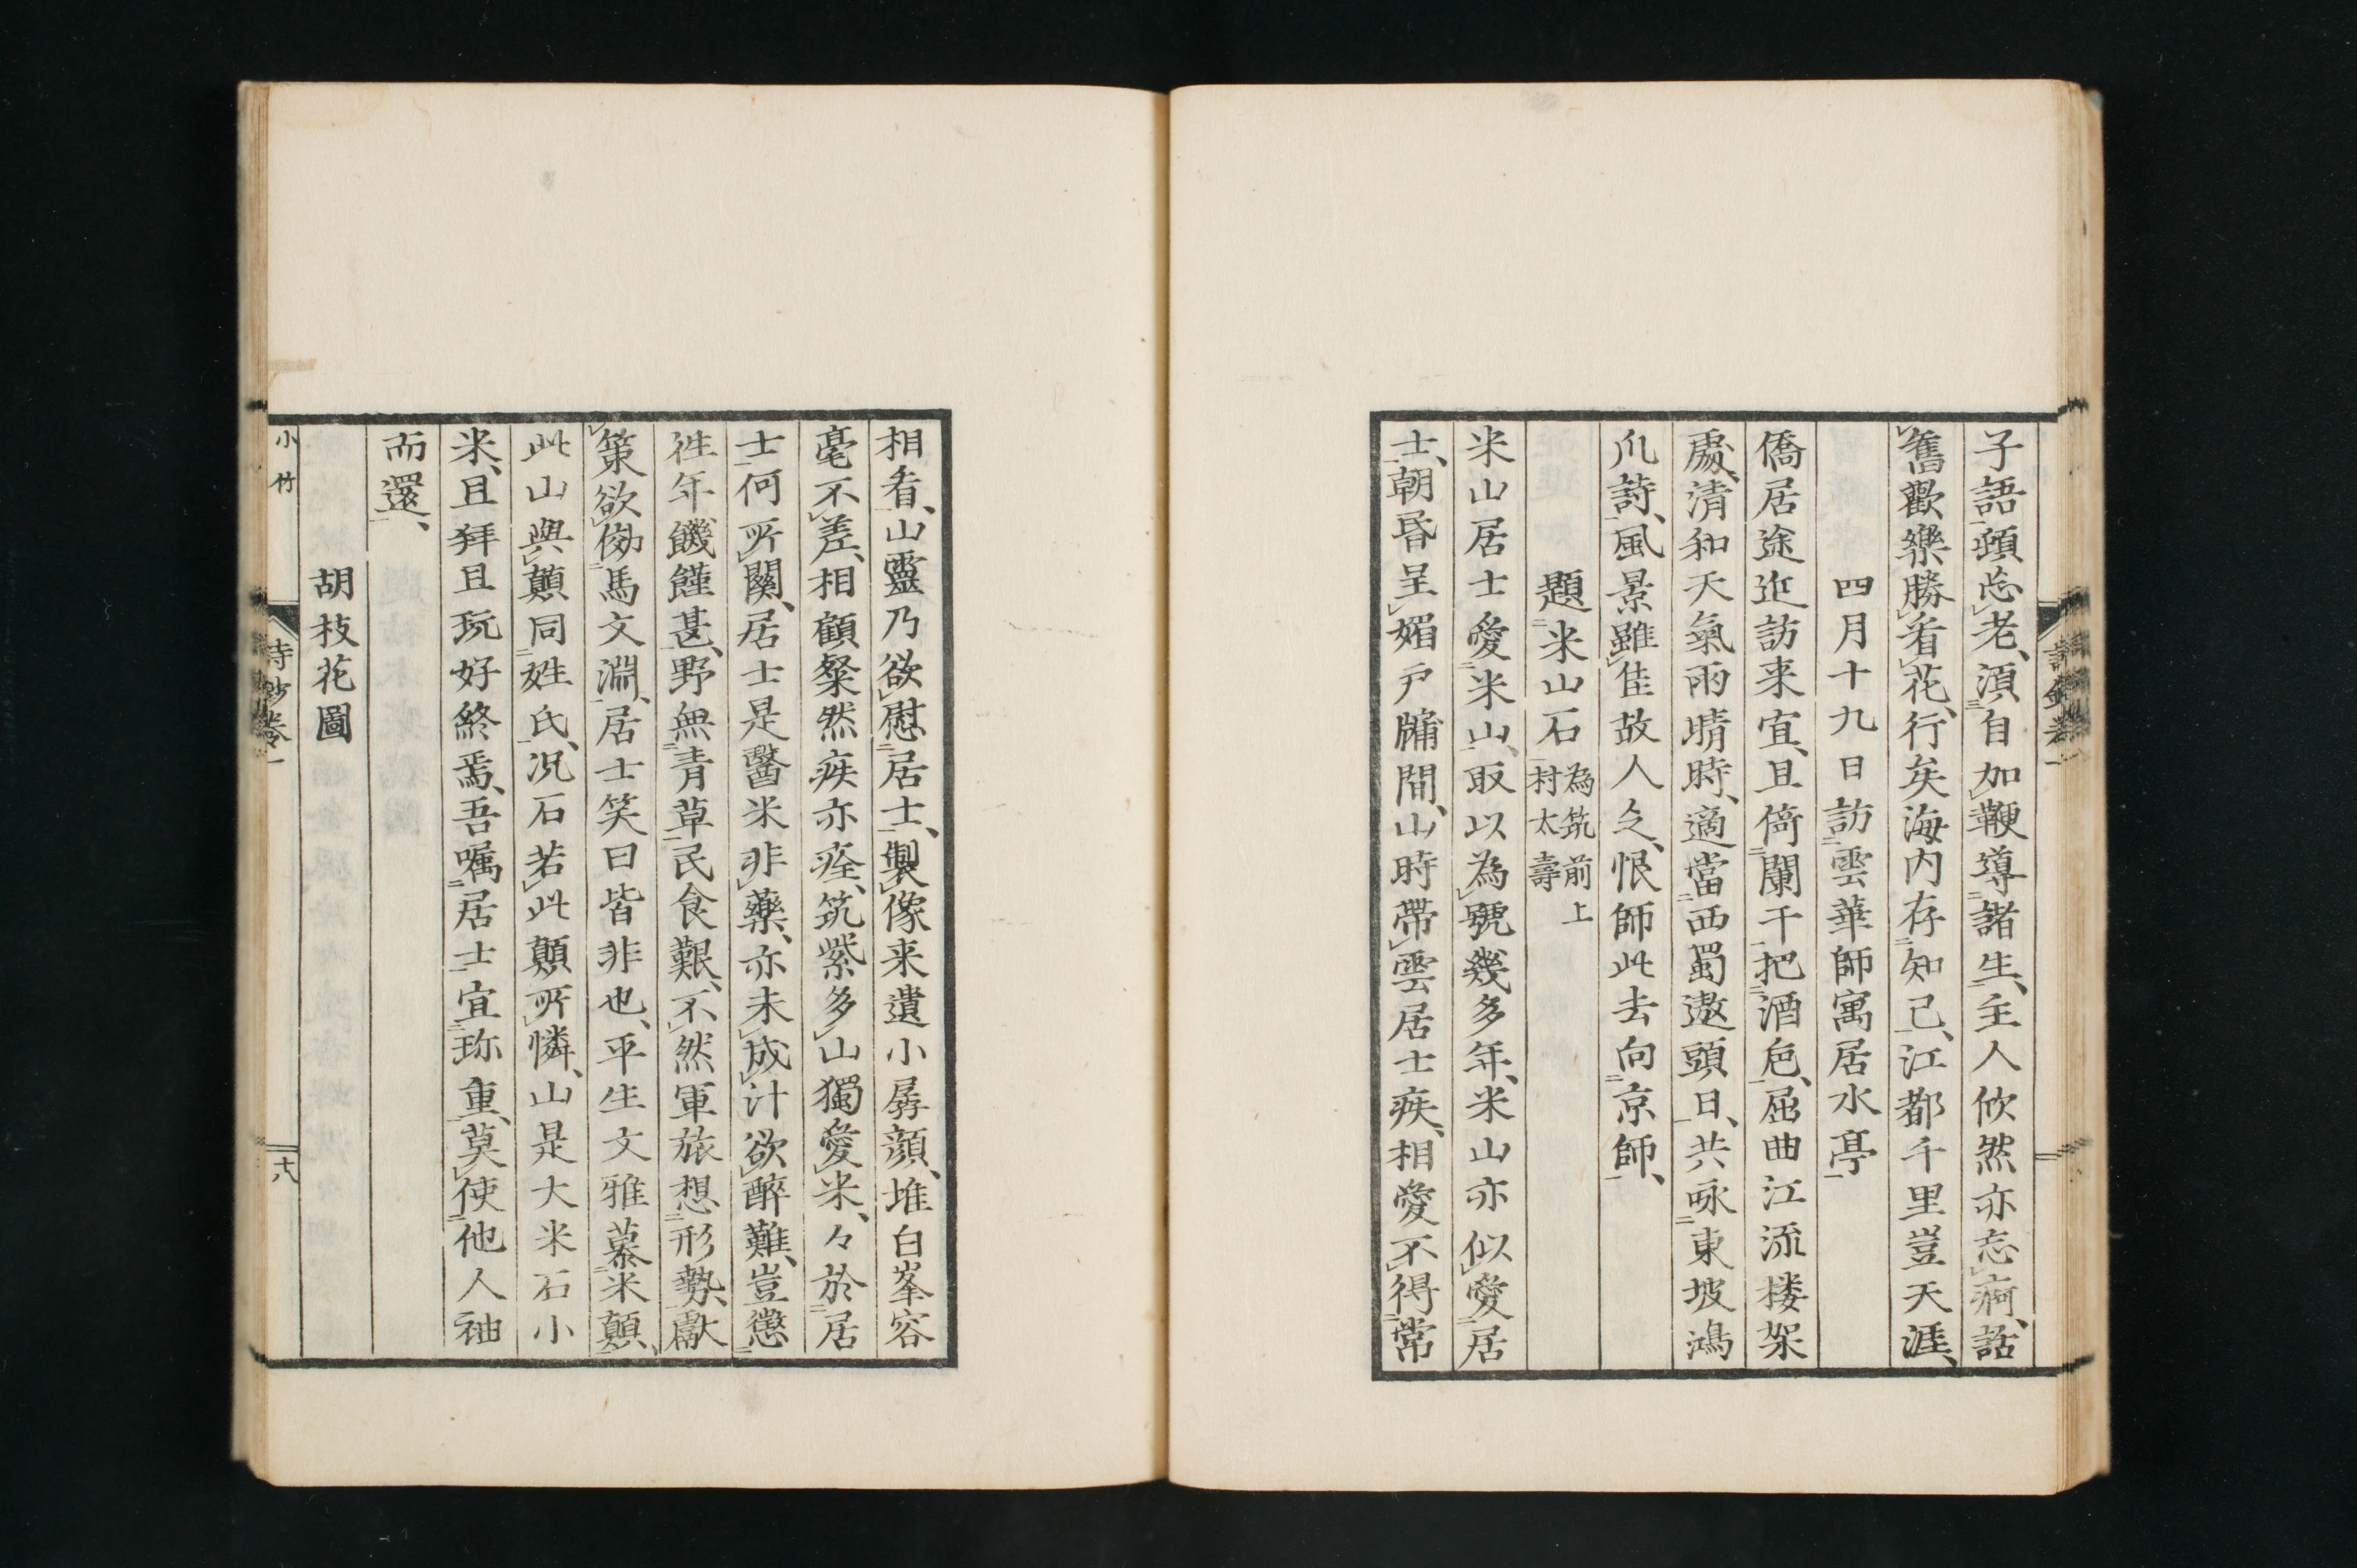 子語頓忘老、須自加鞭導諸生、主人欣然亦忘痾、話
舊歡樂勝看花、行矣海内存知己、江都千里豈天涯、
四月十九日訪雲華師寓居水亭
僑居途近訪来宜、且倚闌干把酒巵、屈曲江流楼架
處、清和天氣雨晴時、適當西蜀遨頭日、共咏東坡鴻
爪詩、風景雖佳故人乏、恨師此去向京師、
題米山石為筑前上村太壽
米山居士愛米山、取以為號幾多年、米山亦似愛居
士、朝昏呈媚戸牖間、山時帶雲居士疾、相愛不得常
相看、山靈乃欲慰居士、製像来遺小孱顔、堆白峯容
毫不差、相顧粲然疾亦痊、筑紫多山獨愛米、々於居
士何所關、居士是醫米非藥、亦未成汁欲醉難、豈懲
徃年饑饉甚、野無青草民食艱、不然軍旅想形勢、獻
策欲傚馬文淵、居士笑曰皆非也、平生文雅慕米顛、
此山與顛同姓氏、况石若此顛所憐、山是大米石小
米、且拜且玩好終焉、吾嘱居士宜珎重、莫使他人袖
而還、
胡枝花圖
小竹
詩鈔卷一
十八